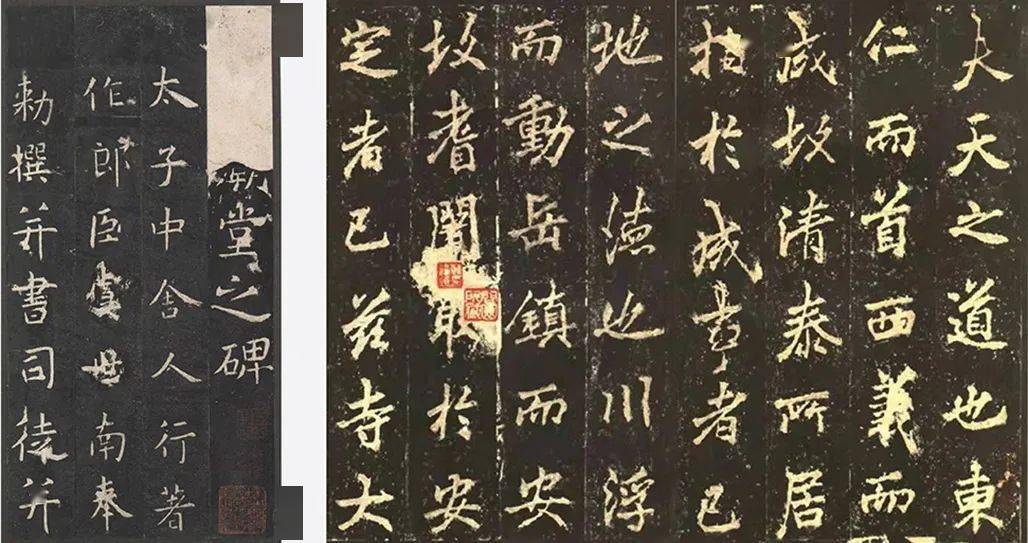 堂之碑
太子中舍人行著
作郎臣虞世南奉
勅撰并書司徒并
夫天之道也東
仁而首西義而
成故清泰所居
指於成事者已
地之德也川浮
而動岳鎮而安
故耆闍取於安
定者已兹寺大